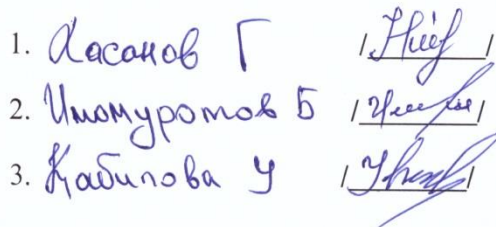 1. Хасанов Г / /
2. Имомуротов Б / /
3. Қабилова У / /